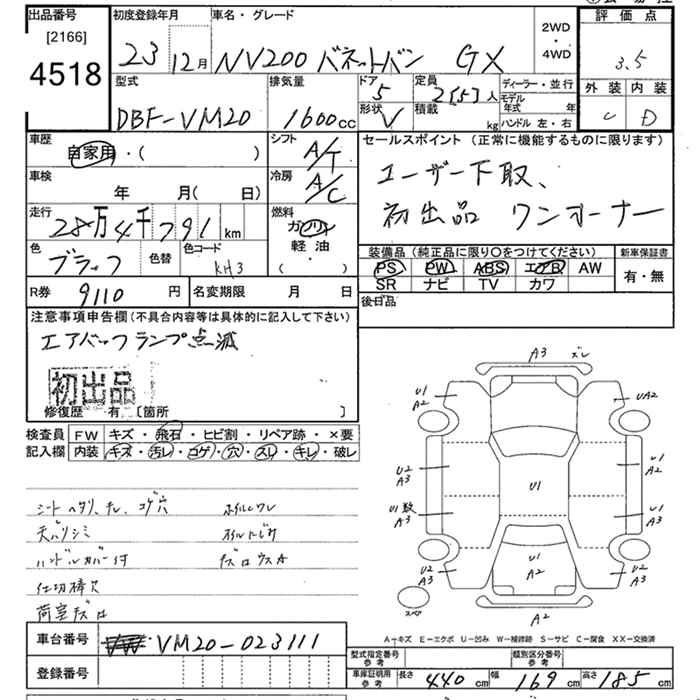 出品番号 初度登録年月 車名・グレード 2WD・4WD 評価点
[2166]
4518 23 12月 NV200 バネットバン GX 3.5
型式 排気量 ドア 5 定員 2[5]人 ディーラー・並行 外装 内装
DBF-VM20 1600cc 形状 V 積載 kg モデル年式 年 D
ハンドル 左・右
車歴 自家用・( ) シフト A/T セールスポイント (正常に機能するものに限ります)
車検 年 月(日) 冷房 A/C ユーザー下取、
走行 28万4千791km 燃料 ガソリン 初出品 ワンオーナー
軽油・( )
色 ブラック 色替 色コード KH3 装備品 (純正品に限り○をつけてください) 新車保証書
PS PW ABS エアB AW 有・無
R券 9110円 名変期限 月 日 SR ナビ TV カワ
後日品
注意事項申告欄 (不具合内容等は具体的に記入して下さい)
エアバックランプ点滅
初出品
修復歴 有 [箇所 ]
検査員 FW キズ・飛石・ヒビ割・リペア跡・×要
記入欄 内装 キズ・汚レ・コゲ・穴・スレ・キレ・破レ
シートヘタリ、チレ、コゲ穴
天バリシミ
ハンドルカバー付
仕切棒欠
荷室キズ
A3 ズレ
U1 A2
UA2
U2 A3
U1
U1 A2
U1数 A3
U1 A3
U1 A2
U2 A3
U2 A3
スペア
A2
A-キズ E-エクボ U-凹み W-補修跡 S-サビ C-腐食 XX-交換済
車台番号 VM20-023111
登録番号
型式指定番号 参考 類別区分番号 参考
車庫証明用 参考 長さ 440cm 幅 169cm 高さ 185cm